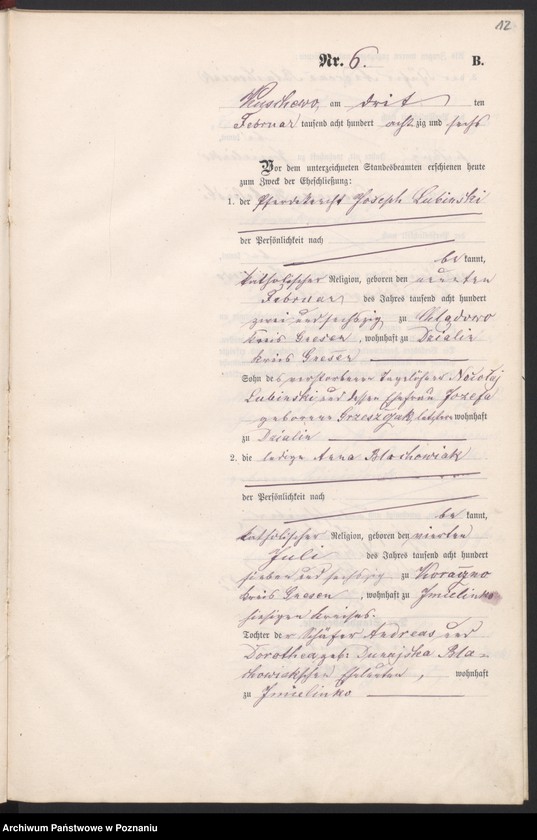 12
Nr. 6. B.
am drit ten
Februar tausend acht hundert achtzig und sechs
Vor dem unterzeichneten Standesbeamten erschienen heute
zum Zweck der Eheschließung:
1. der Pferdeknecht Joseph Lubinski
der Persönlichkeit nach
be kannt,
katholischer Religion, geboren den neunten
Februar des Jahres tausend acht hundert
zwei und sechszig zu
Kreis Gnesen, wohnhaft zu Dzialin
Kreis Gnesen
Sohn des verstorbenen Tagelöhner Nicolaj
Lubinski und dessen Ehefrau Josefa
geborene letztere wohnhaft
zu Dzialin
2. die ledige Anna Blachowiak
der Persönlichkeit nach
be kannt,
katholischer Religion, geboren den vierten
Juli des Jahres tausend acht hundert
sieben und sechszig zu
Kreis Gnesen, wohnhaft zu Imielinko
hiesigen Kreises.
Tochter der Schäfer Andreas und
Dorothea geb. Bla-
chowiakschen Eheleuten, wohnhaft
zu Imielinko
Archiwum Państwowe w Poznaniu